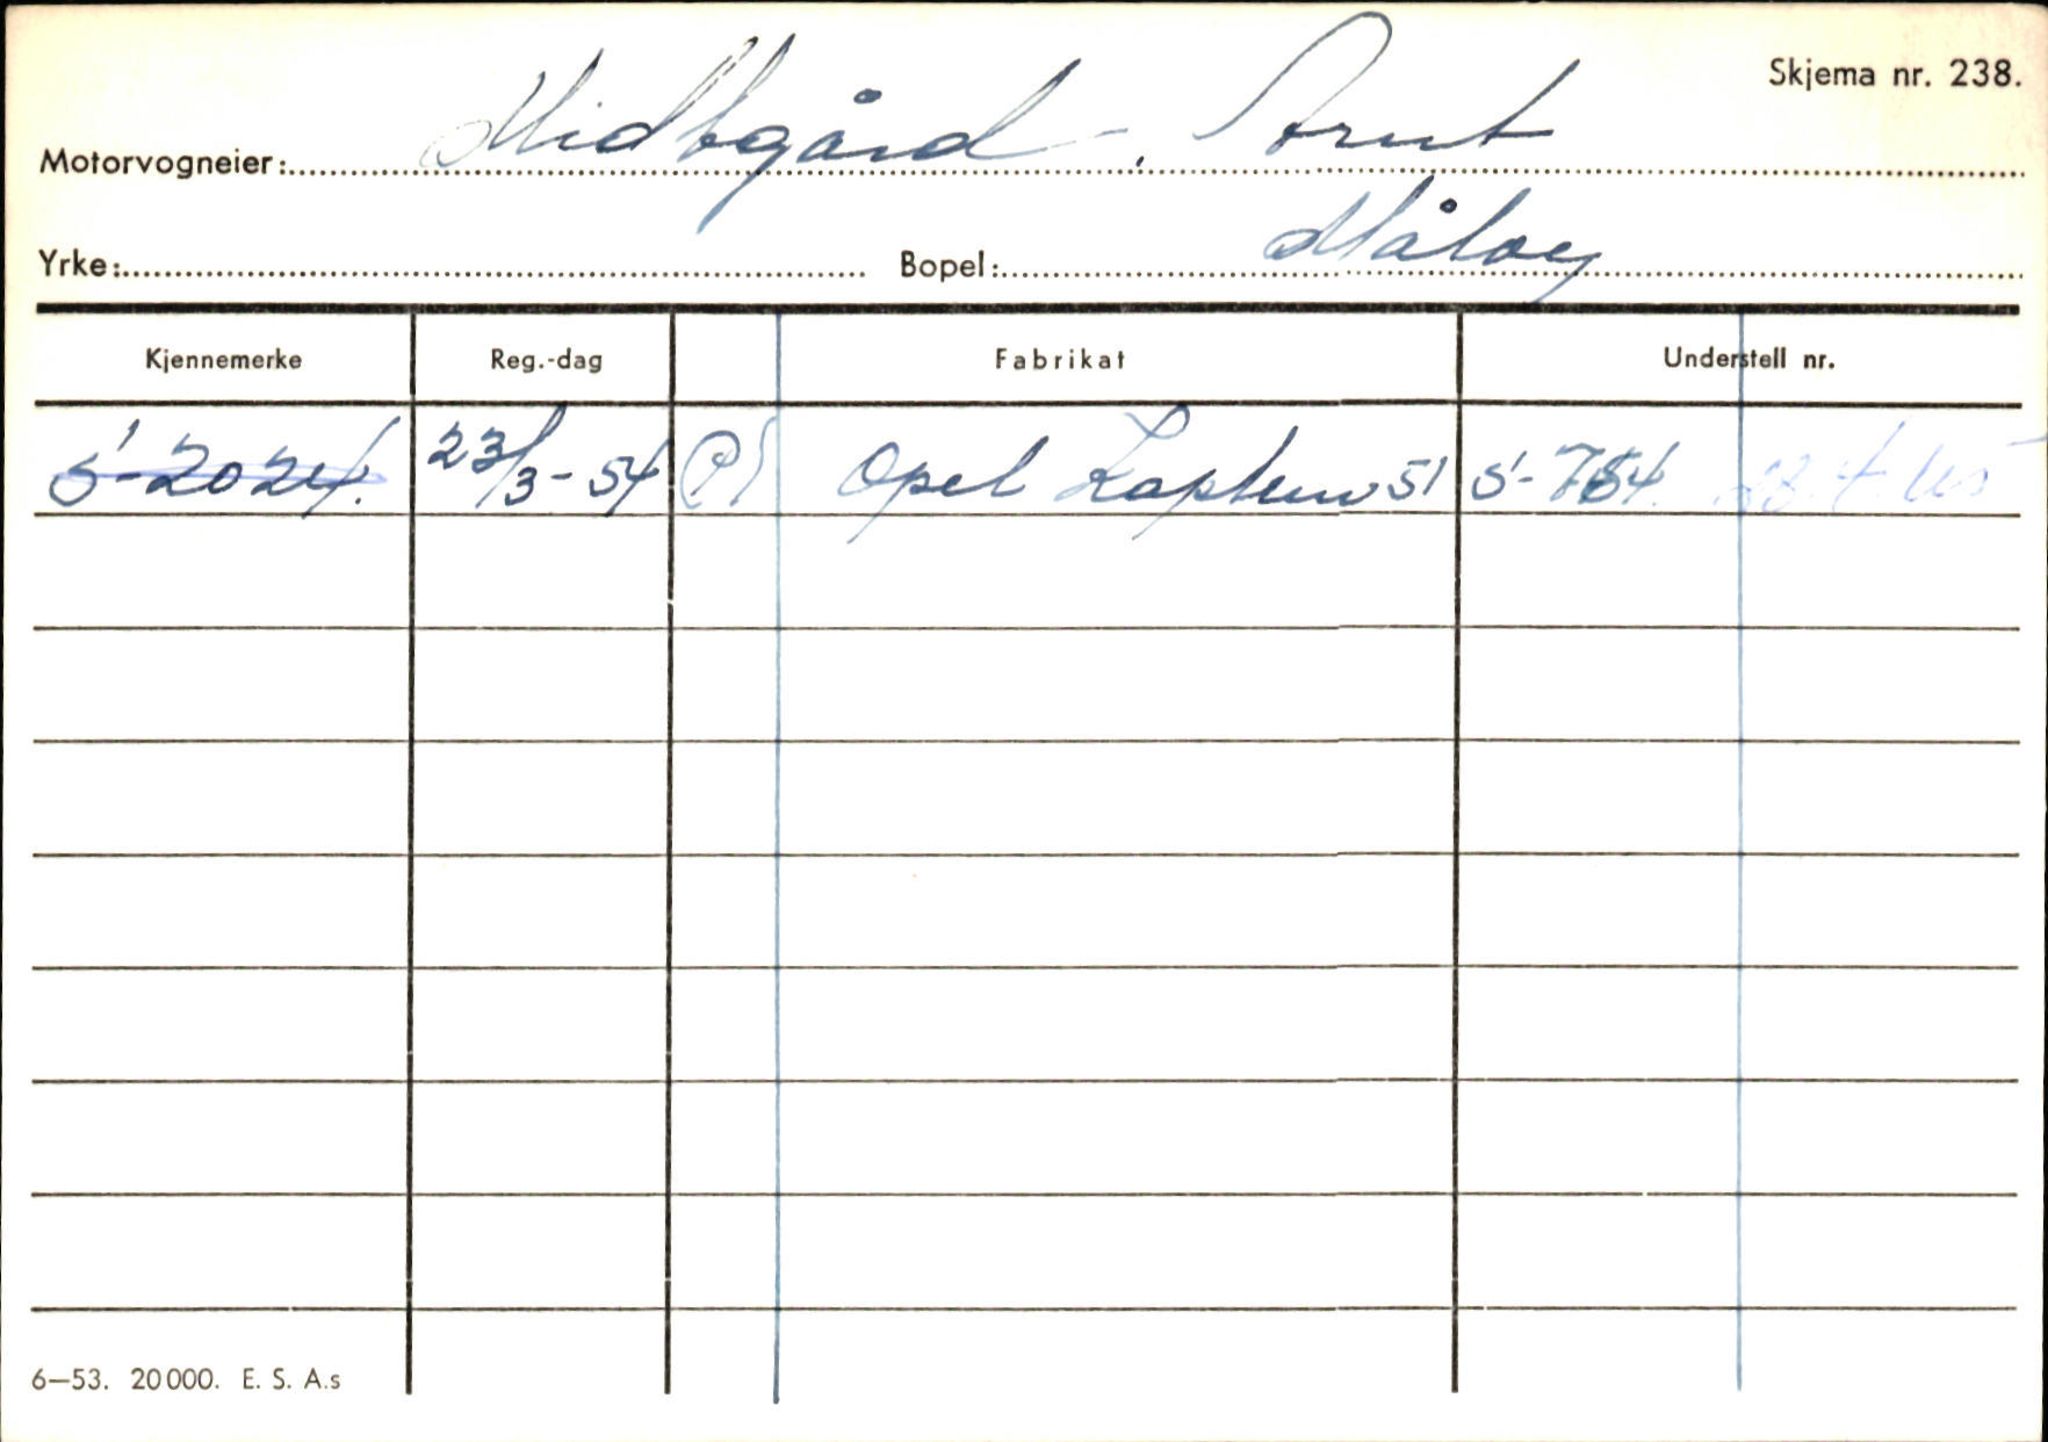 Skjema nr. 238.
Motorvogneier: Midtgård, Arnt
Yrke: Bopel: Måløy
Kjennemerke Reg.-dag Fabrikat Understell nr.
S-2024. 23/3-54 P Opel Kaptein 51 S-784
6—53. 20000. E. S. A.s